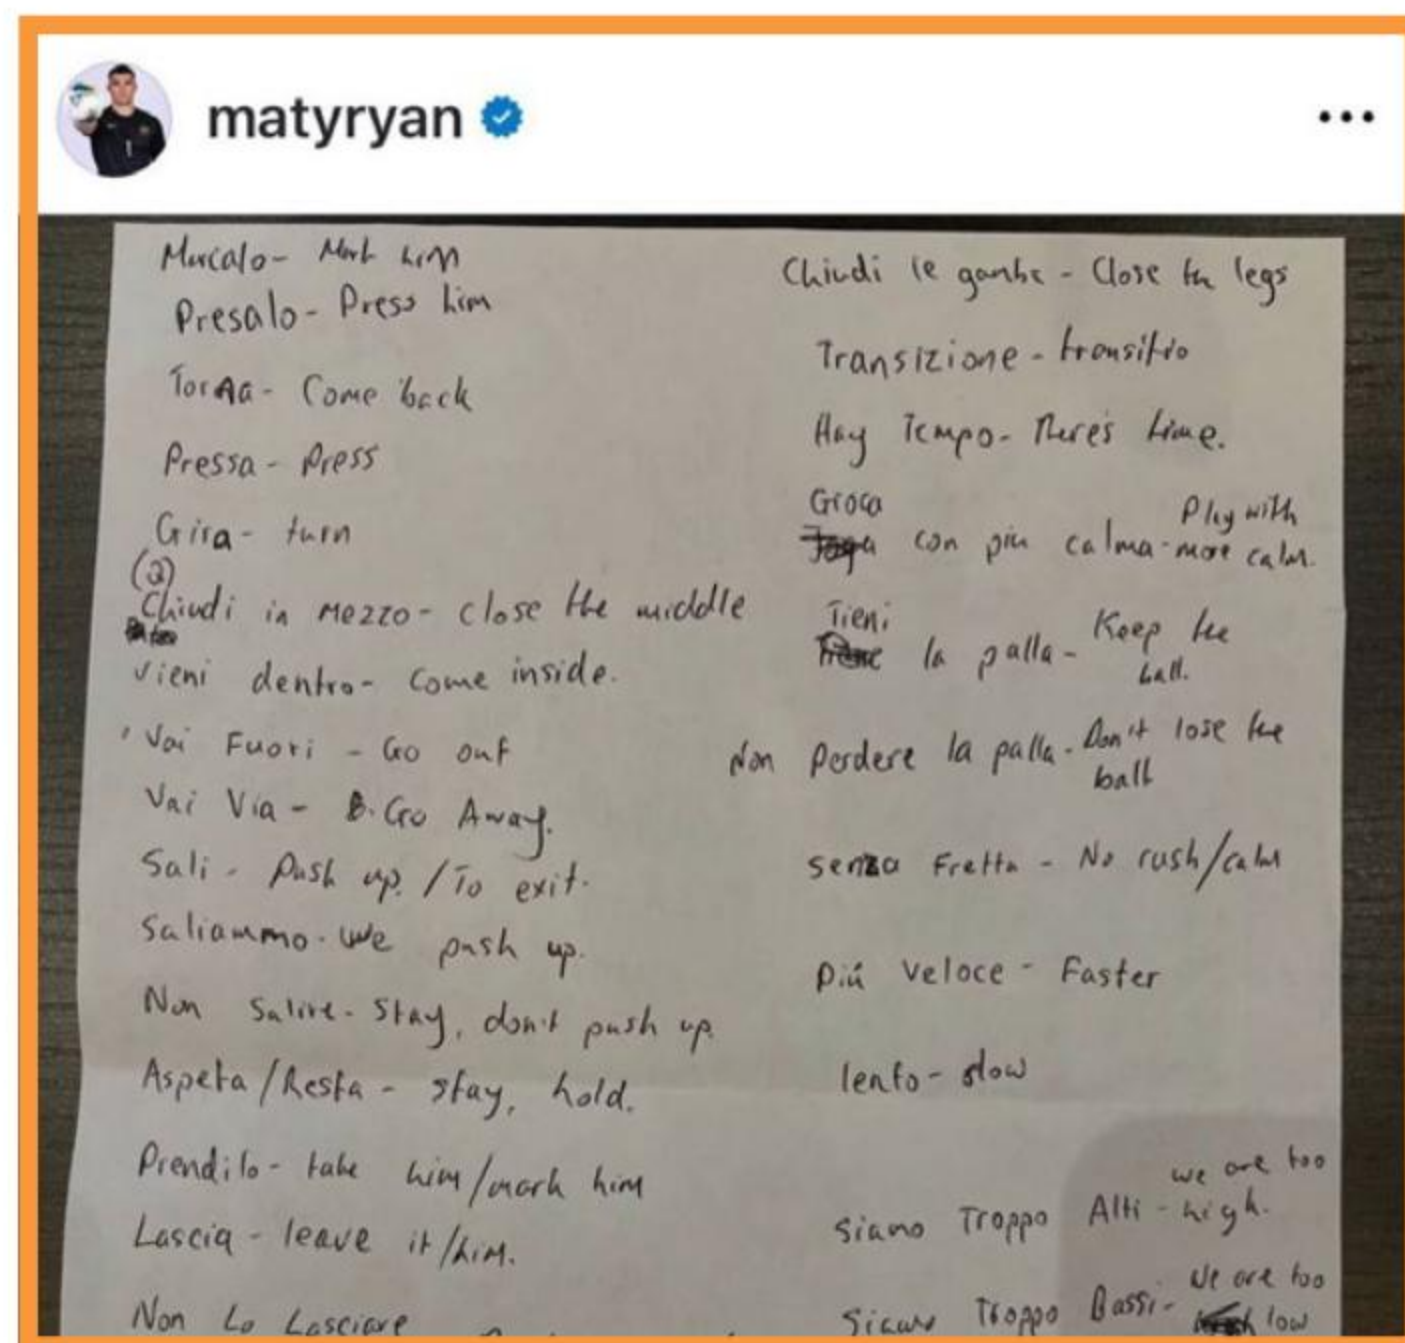 matyryan
Marcalo - Mark him
Presalo - Press him
Torna - Come back
Pressa - Press
Gira - turn
(2)
Chiudi in Mezzo - Close the middle
Vieni dentro - Come inside.
Vai Fuori - Go out
Vai Via - B. Go Away.
Sali - Push up. / To exit.
Saliammo - We push up.
Non Salire - Stay, don't push up.
Aspeta / Resta - Stay, hold.
Prendilo - take him / mark him
Lascia - leave it / him.
Non Lo Lasciare
Chiudi le gambe - Close the legs
Transizione - transitio
Hay Tempo - There's time.
Gioca Play with
Joga con più calma - more calm.
Tieni Keep the
la palla - ball.
Non Perdere la palla - Don't lose the
ball
Senza Fretta - No rush / calm
Più Veloce - Faster
lento - slow
we are too
Siamo Troppo Alti - high.
We are too
Siamo Troppo Bassi - low